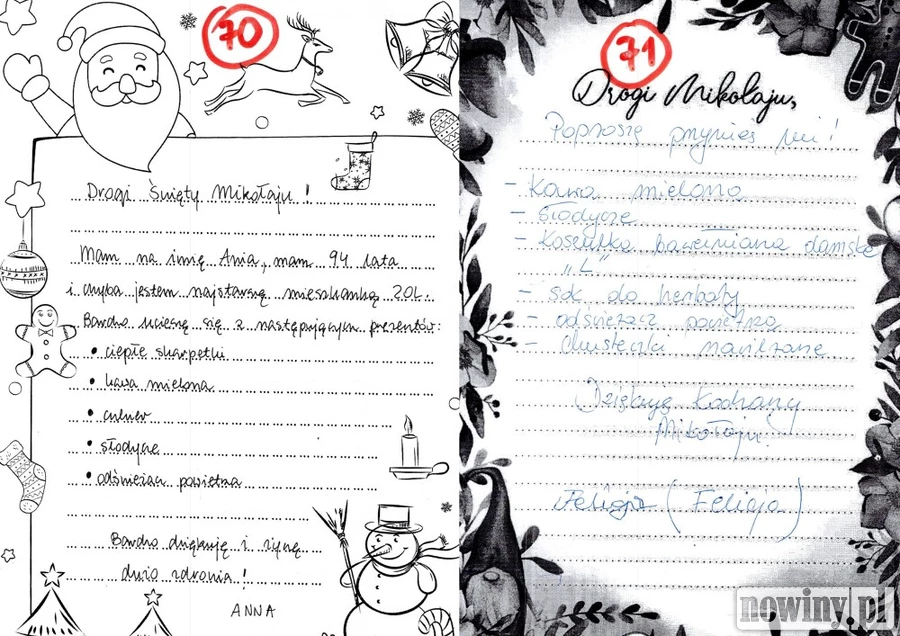 70
Drogi Święty Mikołaju!
Mam na imię Ania, mam 94 lata
i chyba jestem najstarszą mieszkanką ZOL.
Bardzo ucieszę się z następującym prezentów:
• ciepłe skarpetki
• kawa mielona
• cukier
• słodycze
• odświeżacz powietrza
Bardzo dziękuję i życzę
dużo zdrowia!
ANNA
71
Drogi Mikołaju,
Poproszę przynieś mi!
- Kawa mielona
- słodycze
- Koszulka bawełniana damska
"L"
- sok do herbaty
- odświeżacz powietrza
- chusteczki nawilżane
Dziękuję Kochany
Mikołaju
Felicja (Felicja)
nowiny.pl